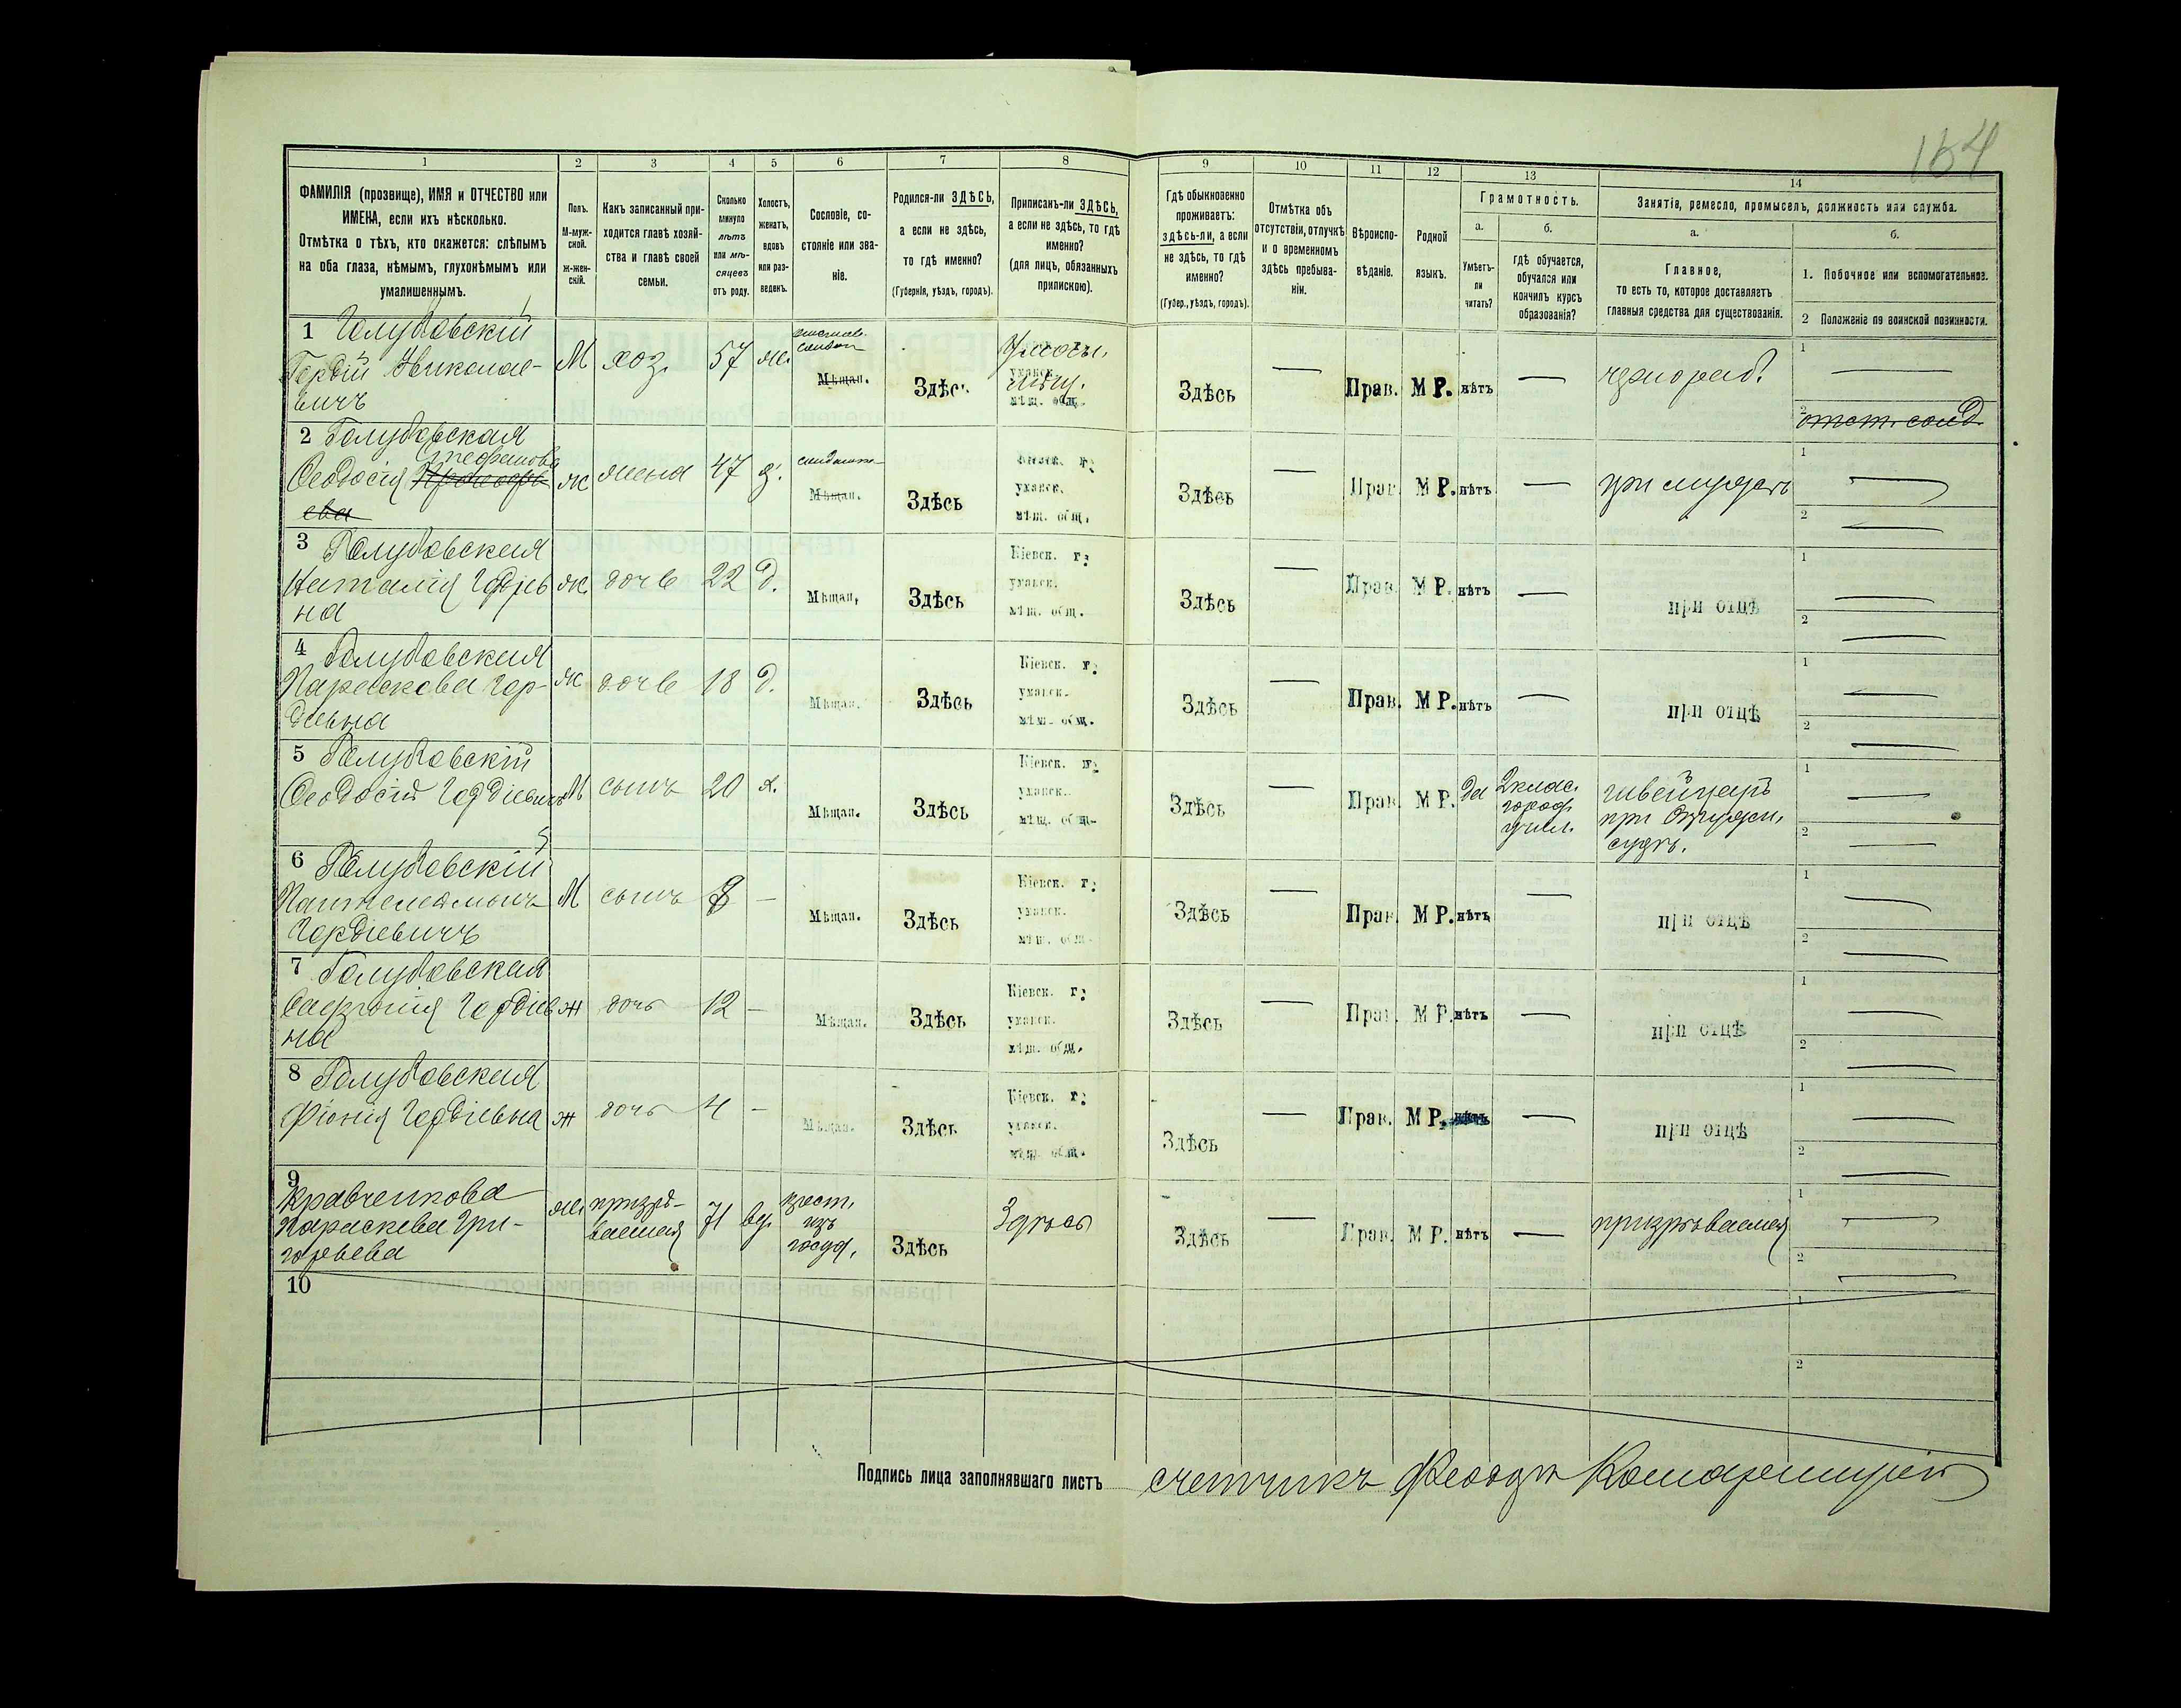 154
1 2 3 4 5 6 7 8 9 10 11 12 13 14
ФАМИЛІЯ (прозвище), ИМЯ и ОТЧЕСТВО или
ИМЕНА, если ихъ нѣсколько.
Отмѣтка о тѣхъ, кто окажется: слѣпымъ
на оба глаза, нѣмымъ, глухонѣмымъ или
умалишеннымъ.
Полъ.
М-муж-
ской.
ж-жен-
скій.
Какъ записанный при-
ходится главѣ хозяй-
ства и главѣ своей
семьи.
Сколько
минуло
лѣтъ
или мѣ-
сяцевъ
отъ роду.
Холостъ,
женатъ,
вдовъ
или раз-
веденъ.
Сословіе, со-
стояніе или зва-
ніе.
Родился-ли ЗДѢСЬ,
а если не здѣсь,
то гдѣ именно?
(Губернія, уѣздъ, городъ).
Приписанъ-ли ЗДѢСЬ,
а если не здѣсь, то гдѣ
именно?
(для лицъ, обязанныхъ
припискою).
Гдѣ обыкновенно
проживаетъ:
здѣсь-ли, а если
не здѣсь, то гдѣ
именно?
(Губер., уѣздъ, городъ).
Отмѣтка объ
отсутствіи, отлучкѣ
и о временномъ
здѣсь пребыва-
ніи.
Вѣроиспо-
вѣданіе.
Родной
языкъ.
Грамотность.
а.
Умѣетъ-
ли
читать?
б.
гдѣ обучается,
обучался или
кончилъ курсъ
образованія?
Занятіе, ремесло, промыселъ, должность или служба.
а.
Главное,
то есть то, которое доставляетъ
главныя средства для существованія.
б.
1. Побочное или вспомогательное.
2 Положеніе по воинской повинности.
1 Голубовскій
Гордій Николае-
вичъ
М хоз. 57 ж.
Мѣщан.
Здѣсь
мѣщ. общ.
Здѣсь — Прав. М Р. нѣтъ —
чернораб.
1 —
2 отст. солд.
2 Голубовская
Стефанова
Феодосія
ж жена 47 з.
Мѣщан.
Здѣсь
Кіевск. г.
уманск.
мѣщ. общ.
Здѣсь — Прав. М Р. нѣтъ —
при мужѣ
1 —
2 —
3 Голубовская
Наталія Гордіев
на
ж. дочь 22 д.
Мѣщан.
Здѣсь
Кіевск. г.
уманск.
мѣщ. общ.
Здѣсь — Прав. М Р. нѣтъ —
при отцѣ
1 —
2 —
4 Голубовская
Параскева Гор-
діевна
ж дочь 18 д.
Мѣщан.
Здѣсь
Кіевск. г.
уманск.
мѣщ. общ.
Здѣсь — Прав. М Р. нѣтъ —
при отцѣ
1 —
2 —
5 Голубовскій
Феодосій Гордіевичъ
М сынъ 20 х.
Мѣщан.
Здѣсь
Кіевск. г.
уманск.
мѣщ. общ.
Здѣсь — Прав. М Р. да
2 клас.
город.
учил.
швейцаръ
при Окружн.
судѣ.
1 —
2 —
6 Голубовскій
Пантелеймонъ
Гордіевичъ
М сынъ 8 —
Мѣщан.
Здѣсь
Кіевск. г.
уманск.
мѣщ. общ.
Здѣсь — Прав. М Р. нѣтъ —
при отцѣ
1 —
2 —
7 Голубовская
Гордіев
на
ж дочь 12 —
Мѣщан.
Здѣсь
Кіевск. г.
уманск.
мѣщ. общ.
Здѣсь — Прав. М Р. нѣтъ —
при отцѣ
1 —
2 —
8 Голубовская
Фіонія Гордіевна
ж дочь 4 —
Мѣщан.
Здѣсь
Кіевск. г.
уманск.
мѣщ. общ.
Здѣсь — Прав. М Р. нѣтъ —
при отцѣ
1 —
2 —
9
Кравченкова
Параскева Гри-
горьева
ж. призрѣ-
ваемая
71 вд.
крест.
изъ
госуд.
Здѣсь
Здѣсь
Здѣсь — Прав. М Р. нѣтъ —
призрѣваемая
1 —
2 —
10
1
2
Подпись лица заполнявшаго листъ счетчикъ